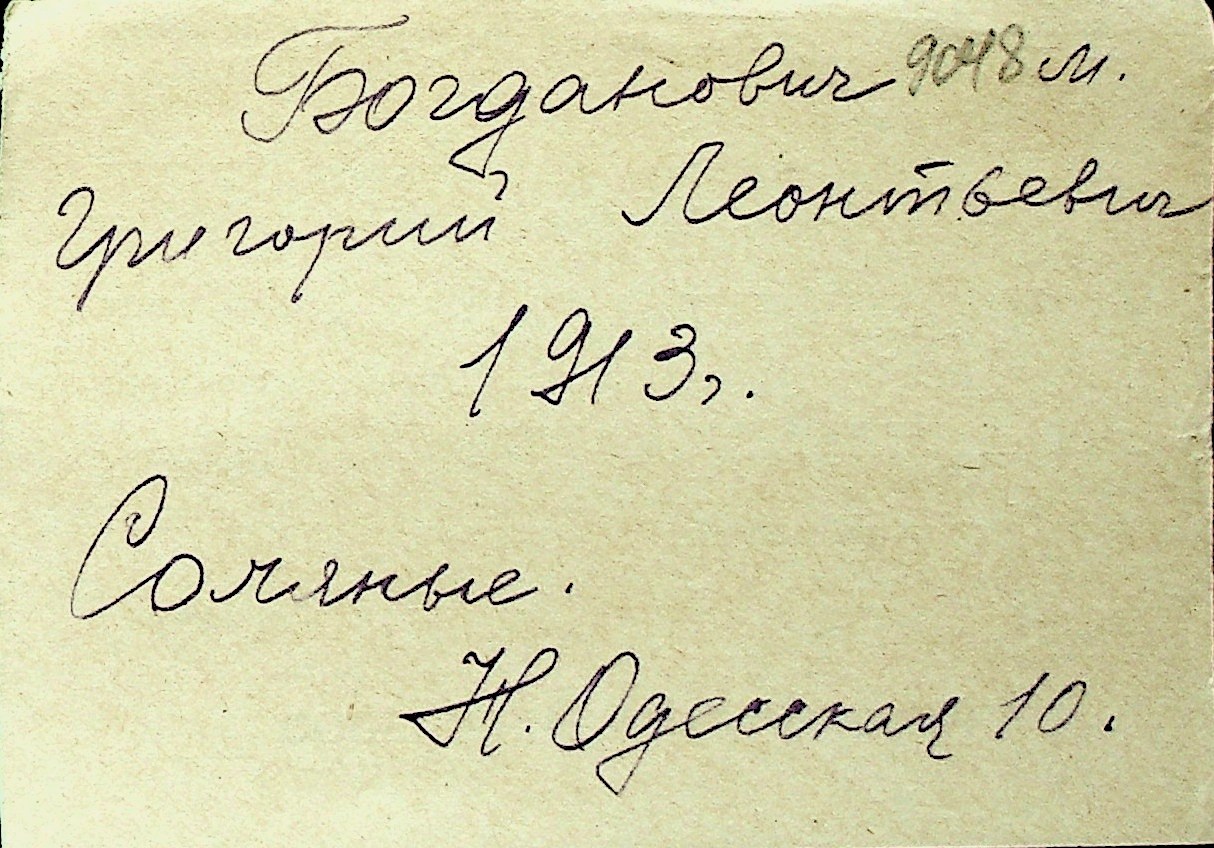 Богданович 9048 м.
Григорий Леонтьевич
1913 г.
Соляные.
Н. Одесская 10.